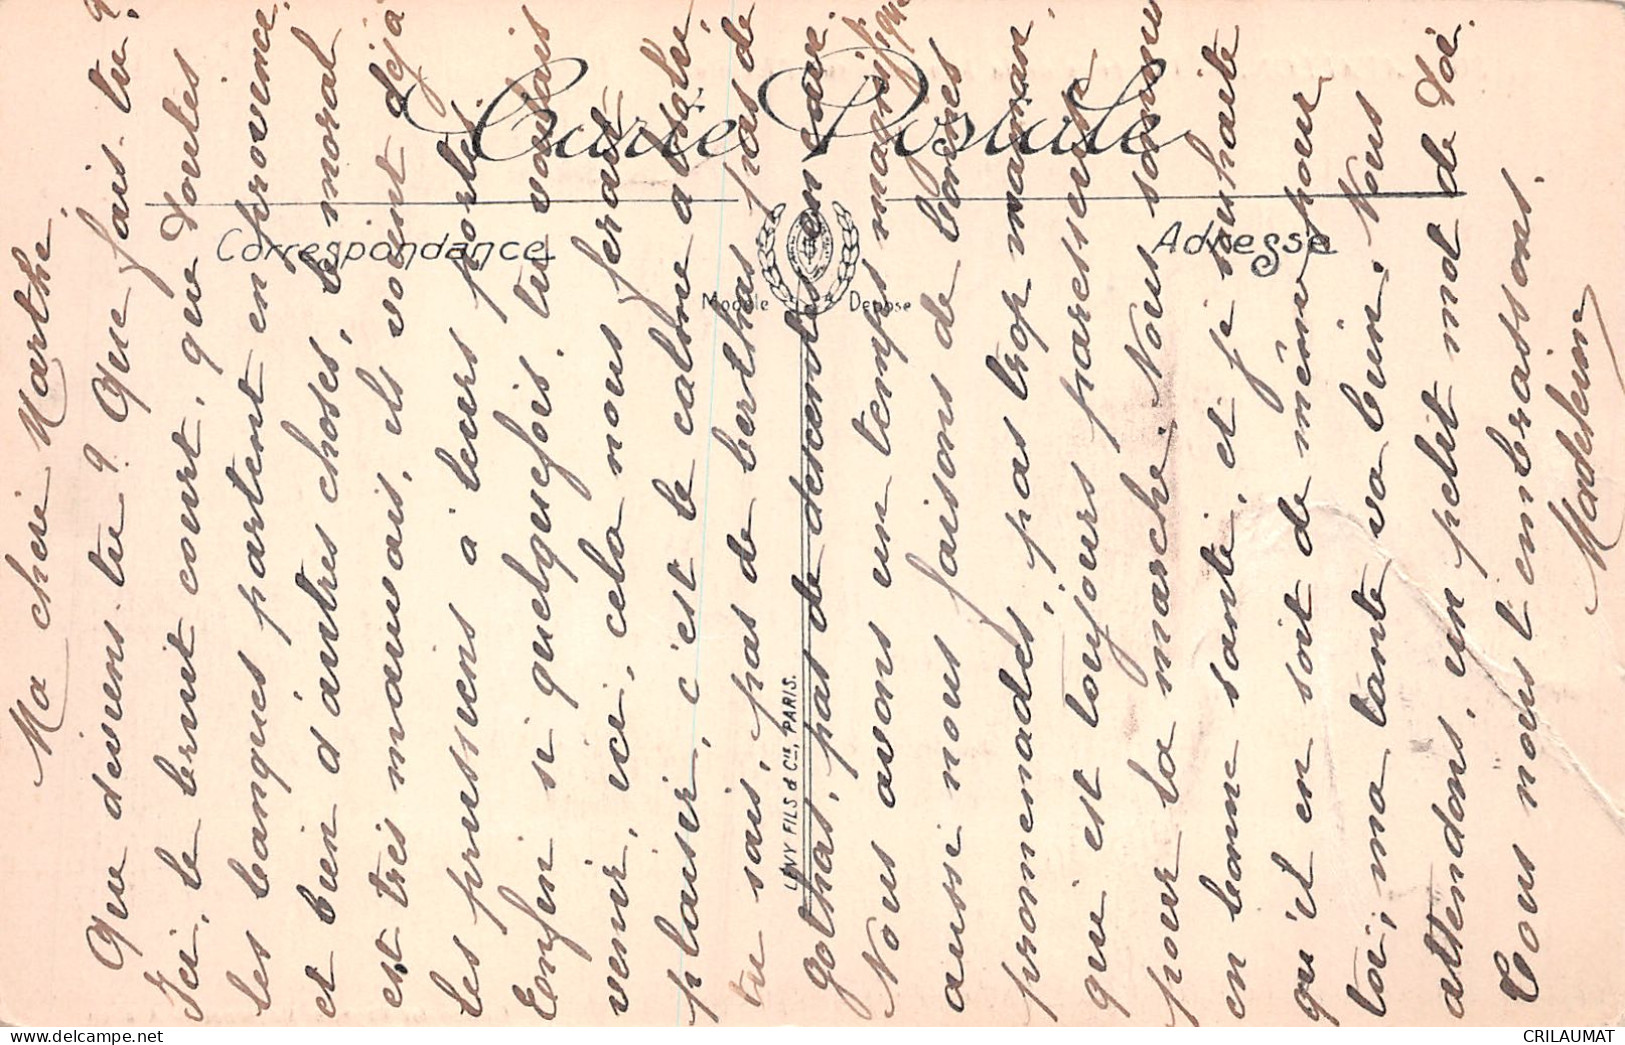 Carte Postale
Correspondance
Adresse
Modèle Déposé
LÉVY FILS & Cie, PARIS.
Ma chère Marthe,
Que deviens-tu ? Que fais-tu ?
Ici, le bruit court, que toutes
les banques partent en province
et bien d'autres choses, le moral
est très mauvais, ils voient déjà
les prussiens à leurs portes.
Enfin si quelquefois, tu voulais
venir, ici, cela nous ferait
plaisir, c'est le calme absolu,
tu sais, pas de berthas pas de
gothas, pas de descente en cave.
Nous avons un temps magnifique
aussi nous faisons de bonnes
promenades, pas trop maman,
qui est toujours paresseuse
pour la marche. Nous sommes
en bonne santé, et je souhaite
qu'il en soit de même pour
toi, ma tante va bien. Nous
attendons, un petit mot de toi.
Tous nous t'embrassons.
Madeleine
CRILAUMAT